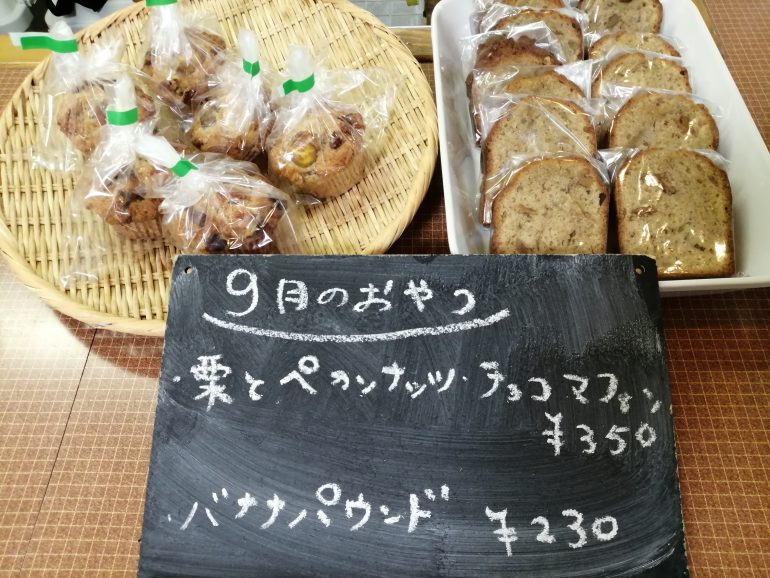 9月のおやつ
・栗とペカンナッツ・チョコマフィン
¥350
・バナナパウンド ¥230